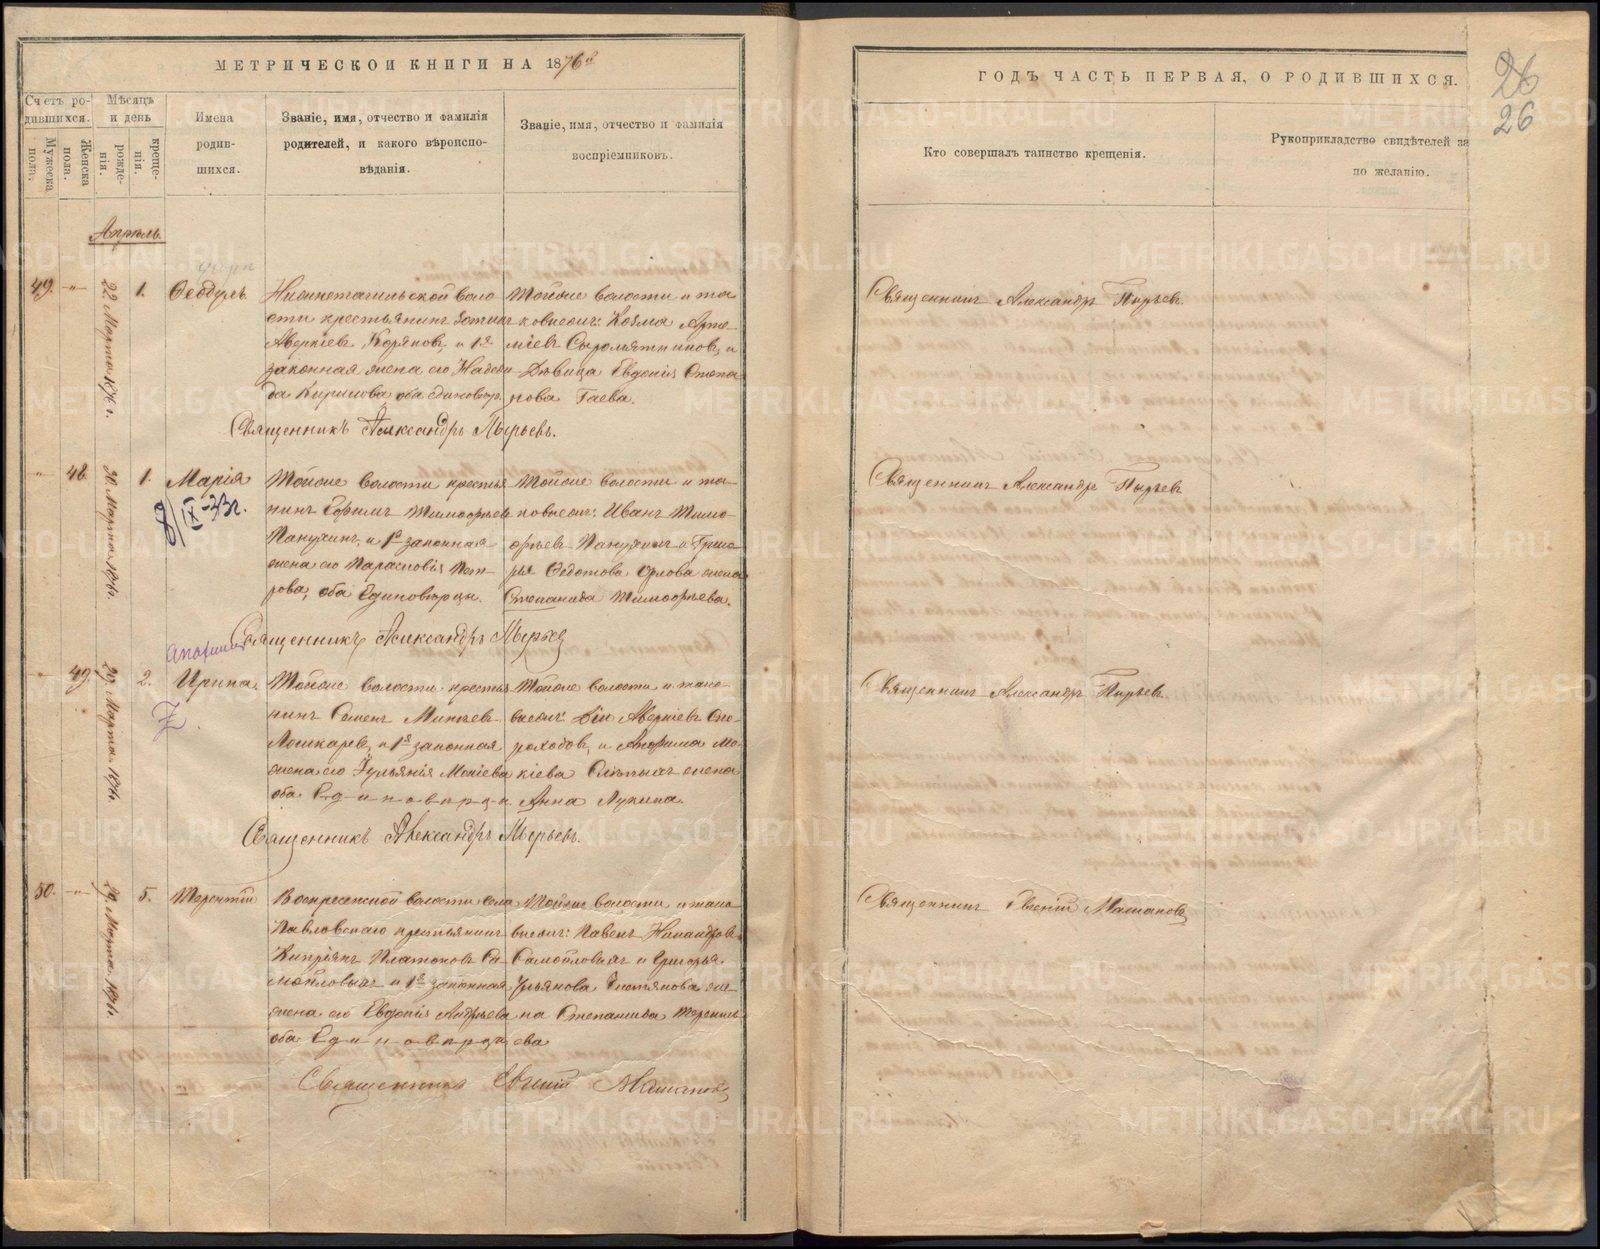 МЕТРИЧЕСКОЙ КНИГИ НА 1876й
Счетъ ро-
дившихся.
Мужеска
пола.
Женска
пола.
Мѣсяцъ
и день
рожде-
нія.
креще-
нія.
Имена
родив-
шихся.
Званіе, имя, отчество и фамилія
родителей, и какого вѣроиспо-
вѣданія.
Званіе, имя, отчество и фамилія
воспріемниковъ.
Апрѣль.
49. 22 Марта 1876 г. 1. Ѳеодоръ.
Нижнетагильской воло
сти крестьянинъ Зотикъ
Аверкіевъ Коряковъ, и 1я
законная жена его Надеж
да Кирилова оба единовѣр.
Тойже волости и та
ковыежъ: Козма Арте
міевъ Сыромятниковъ, и
Дѣвица Евдокія Степа
нова Гаева.
Священникъ Александръ Пырьевъ.
48. 30 Марта 1876г. 1. Марія
8/IX-33г.
Тойже волости крестья
нинъ Ефимъ Тимофѣевъ
Панухинъ, и 1я законная
жена его Парасковія Пет-
рова, оба Единовѣрцы.
Тойже волости и та-
ковыежъ: Иванъ Тимо-
фѣевъ Панухинъ и
Ѳедотова Орлова жена
Степанида Тимофѣева.
Священникъ Александръ Пырьев
49. 29 Марта 1876г. 2. Ирина.
Тойже волости крестья
нинъ Семенъ
Лошкаревъ, и 1я законная
жена его Ульянія Мокіева
оба Единоверцы
Тойже волости и тако-
выежъ: Аверкіевъ Ско-
роходовъ, и Анфима Мо-
кіева Слѣпыхъ жена
Анна Лукина.
Священникъ Александръ Пырьевъ.
50. 29. Марта 1876г. 5. Терентій
Воскресенской волости села
Павловскаго крестьянинъ
Кипріянъ Платоновъ Са
мойловыхъ и 1я законная
жена его Евдокія Андреева
оба Единоверцы
Тойже волости и тако
выежъ: Павелъ Никандровъ
Самойловыхъ и Григорья
Ульянова же-
на Степанида Теренть
ева
Священникъ Евгеній
ГОДЪ ЧАСТЬ ПЕРВАЯ, О РОДИВШИХСЯ.
26
26
Кто совершалъ таинство крещенія.
Рукоприкладство свидѣтелей за
по желанію.
Священникъ Александръ Пырьевъ
Священникъ Александръ Пырьевъ
Священникъ Александръ Пырьевъ
Священникъ Евгеній
METRIKI.GASO-URAL.RU